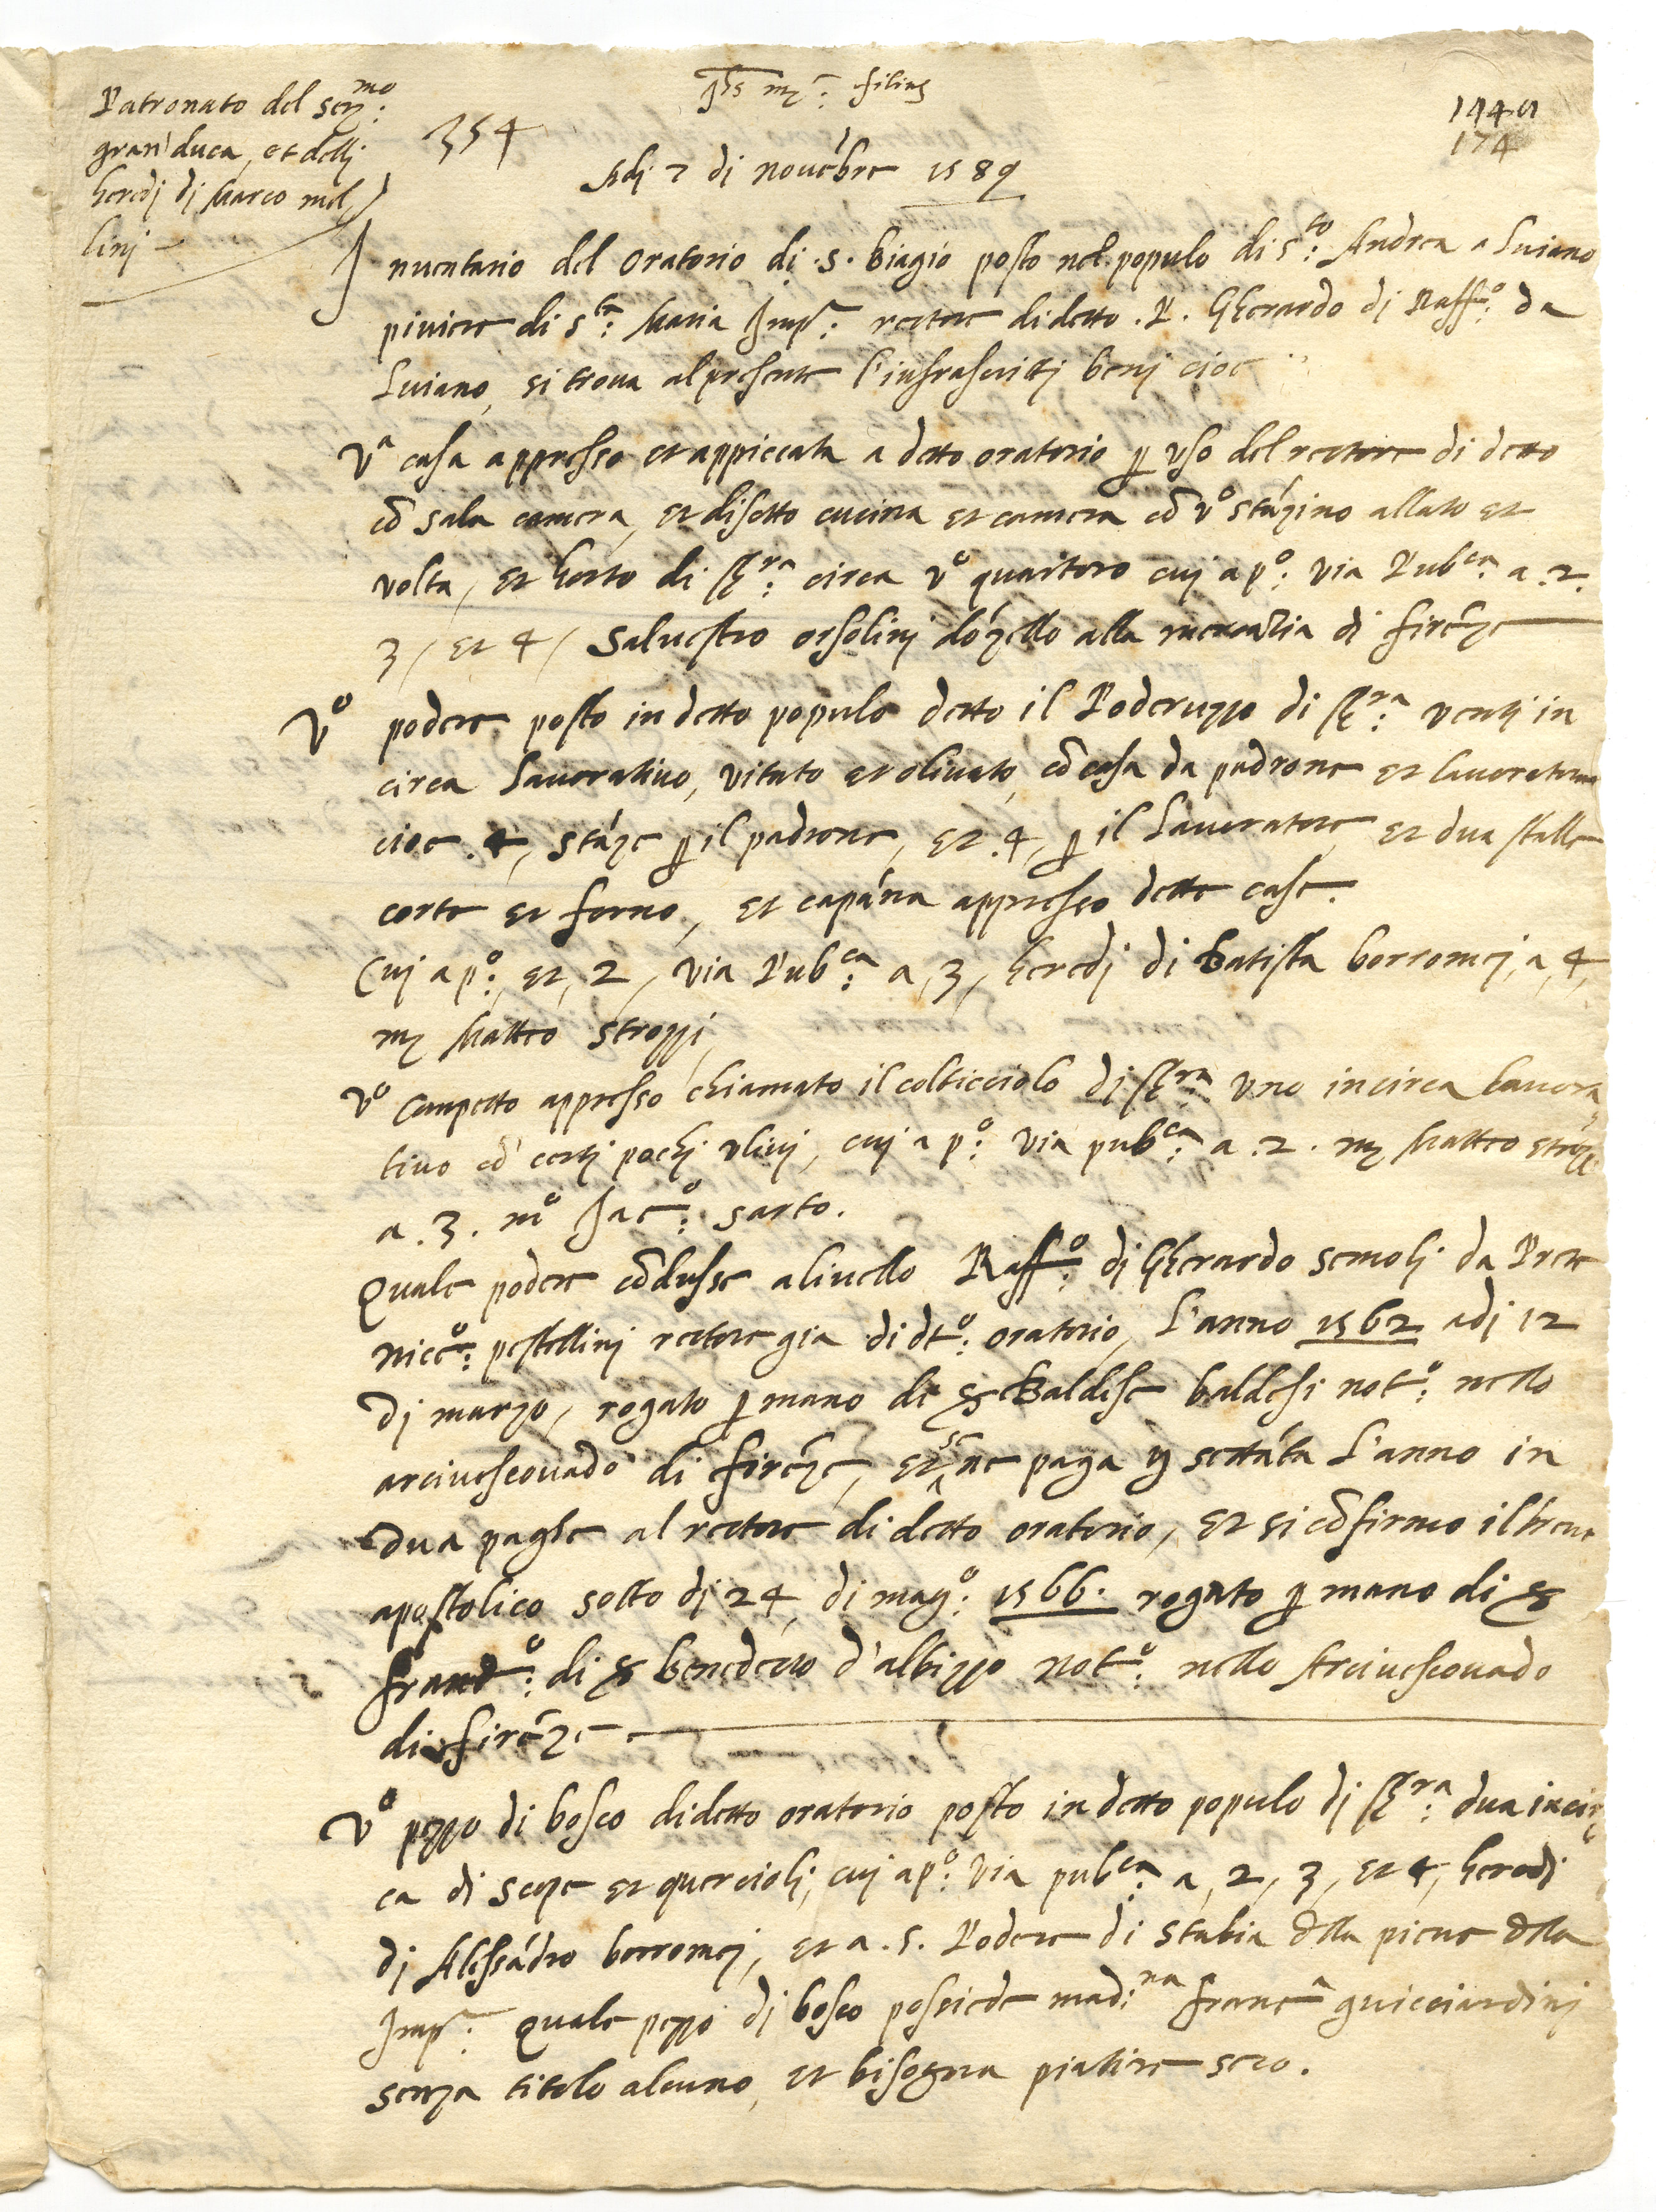 Patronato del Ser.mo
gran duca, et delli
heredi di Marco mel
lini
354
Jhs mē: filius
1440
174
Adi 7 di nouēbre 1589
Inuentario del oratorio di .s. biagio posto nel populo di s.to: Andrea a Luiano
piuiere di s.ta: Maria Impr.ª: rectore di detto .P. Gherardo di Raff.o: da
Luiano, si troua al presente l'infrascritti beni cioe
Vª casa appresso et appiccata a detto oratorio p uso del rectore di detto
cō sala camera, et disotto cucina et camera cō v.o stāzino allato et
volta, et horto di st.ra: circa v.o quartoro cuj a p.o: via Pub.ca: a .2.
3, et 4, Saluestro orsolinj dōzello alla mercātia di firēze
V.o podere posto in detto populo detto il Poderuzzo di st.ra: venti in
circa Lauoratiuo, vitato et oliuato, cō casa da padrone et lauoratore
cioe .4, stāze p il padrone, et .4, p il Lauoratore, et dua stalle
corte et forno, et capāna appresso dette case.
Cuj a p.o: et, 2, via Pub.ca: a, 3, heredj di Batista borromej, a, 4,
m Matteo strozzi
V.o Campetto appresso chiamato il colticciolo dj st.ra: uno incirca lauora
tiuo cō certj pochj ulivj, cuj a p.o: via pub.ca: a .2. m Matteo strozzi
a .3. m.o Jac.o: sarto.
Quale podere cōdusse a liuello Raff.o: dj Gherardo semolj da Prete
nicc.o: pestellinj rectore gia di dt.o: oratorio, L'anno 1562 adj 12
dj marzo, rogato p mano di s Baldese baldesi not.o: nello
arciuescouado di firēze, et se ne paga settāta L'anno in
dua paghe al rectore di detto oratorio, et si cōfirmo il breue
apostolico sotto dj 24 di mag.o: 1566. rogato p mano di s
franc.o: di s benedetto d'albizzo not.o: nello Arciuescouado
di firēze
V.o pezzo di bosco di detto oratorio posto in detto populo dj st.ra: dua incir
ca di scope et querciolj, cuj a p.o: via pub.ca: a, 2, 3, et 4, heredj
dj Alessādro borromej, et a .5. Podere di stabia della pieue della
Impr.ª: Quale pezzo dj bosco possiede mad:na franc.ª guicciardinj
senza titolo alcuno, et bisogna piatire seco.